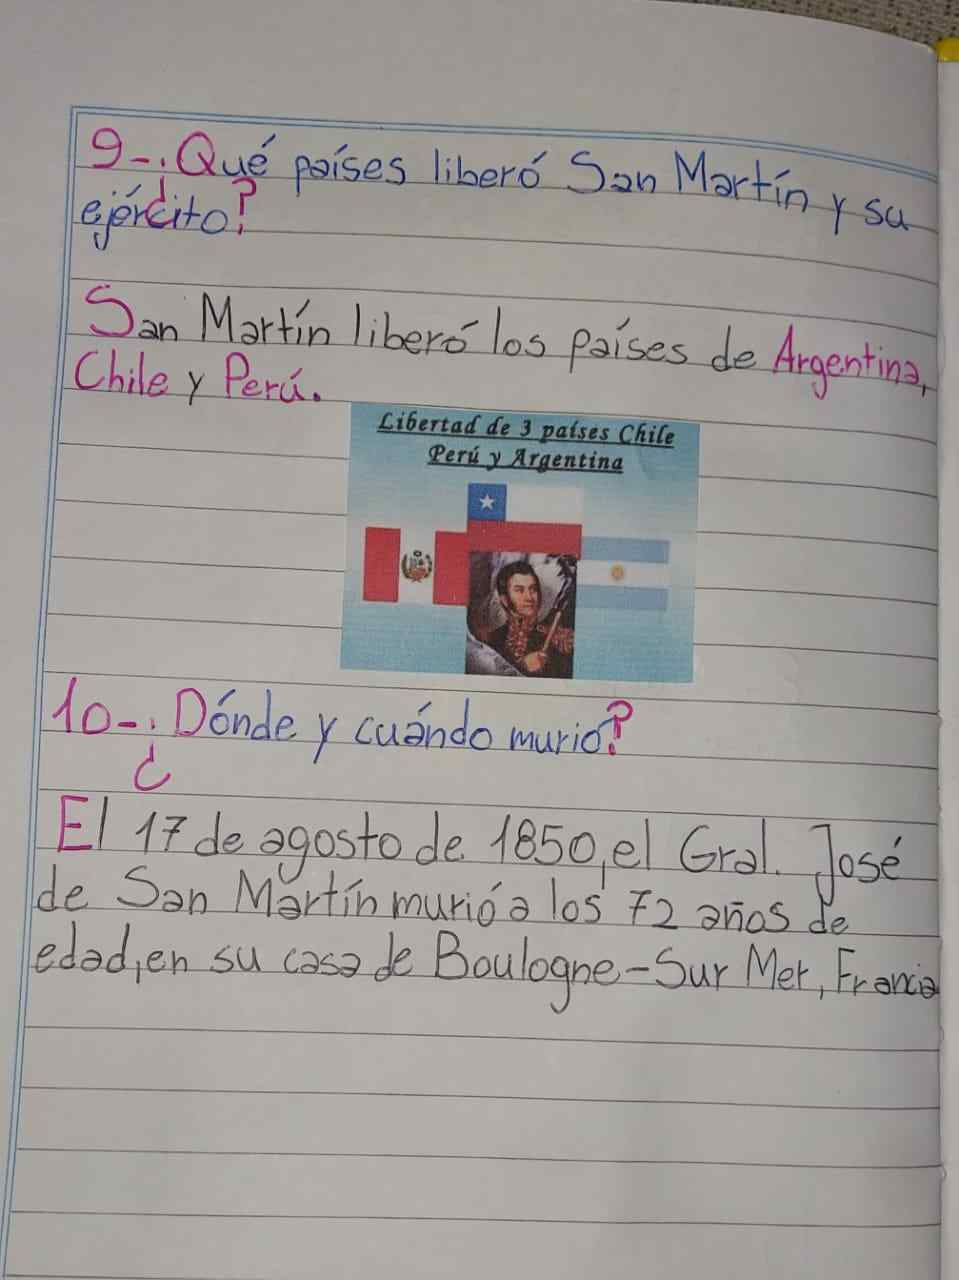 9-¿Qué países liberó San Martín y su
ejército?
San Martín liberó los países de Argentina,
Chile y Perú.
Libertad de 3 países Chile
Perú y Argentina
10-¿Dónde y cuándo murió?
El 17 de agosto de 1850, el Gral. José
de San Martín murió a los 72 años de
edad, en su casa de Boulogne-Sur Mer, Francia